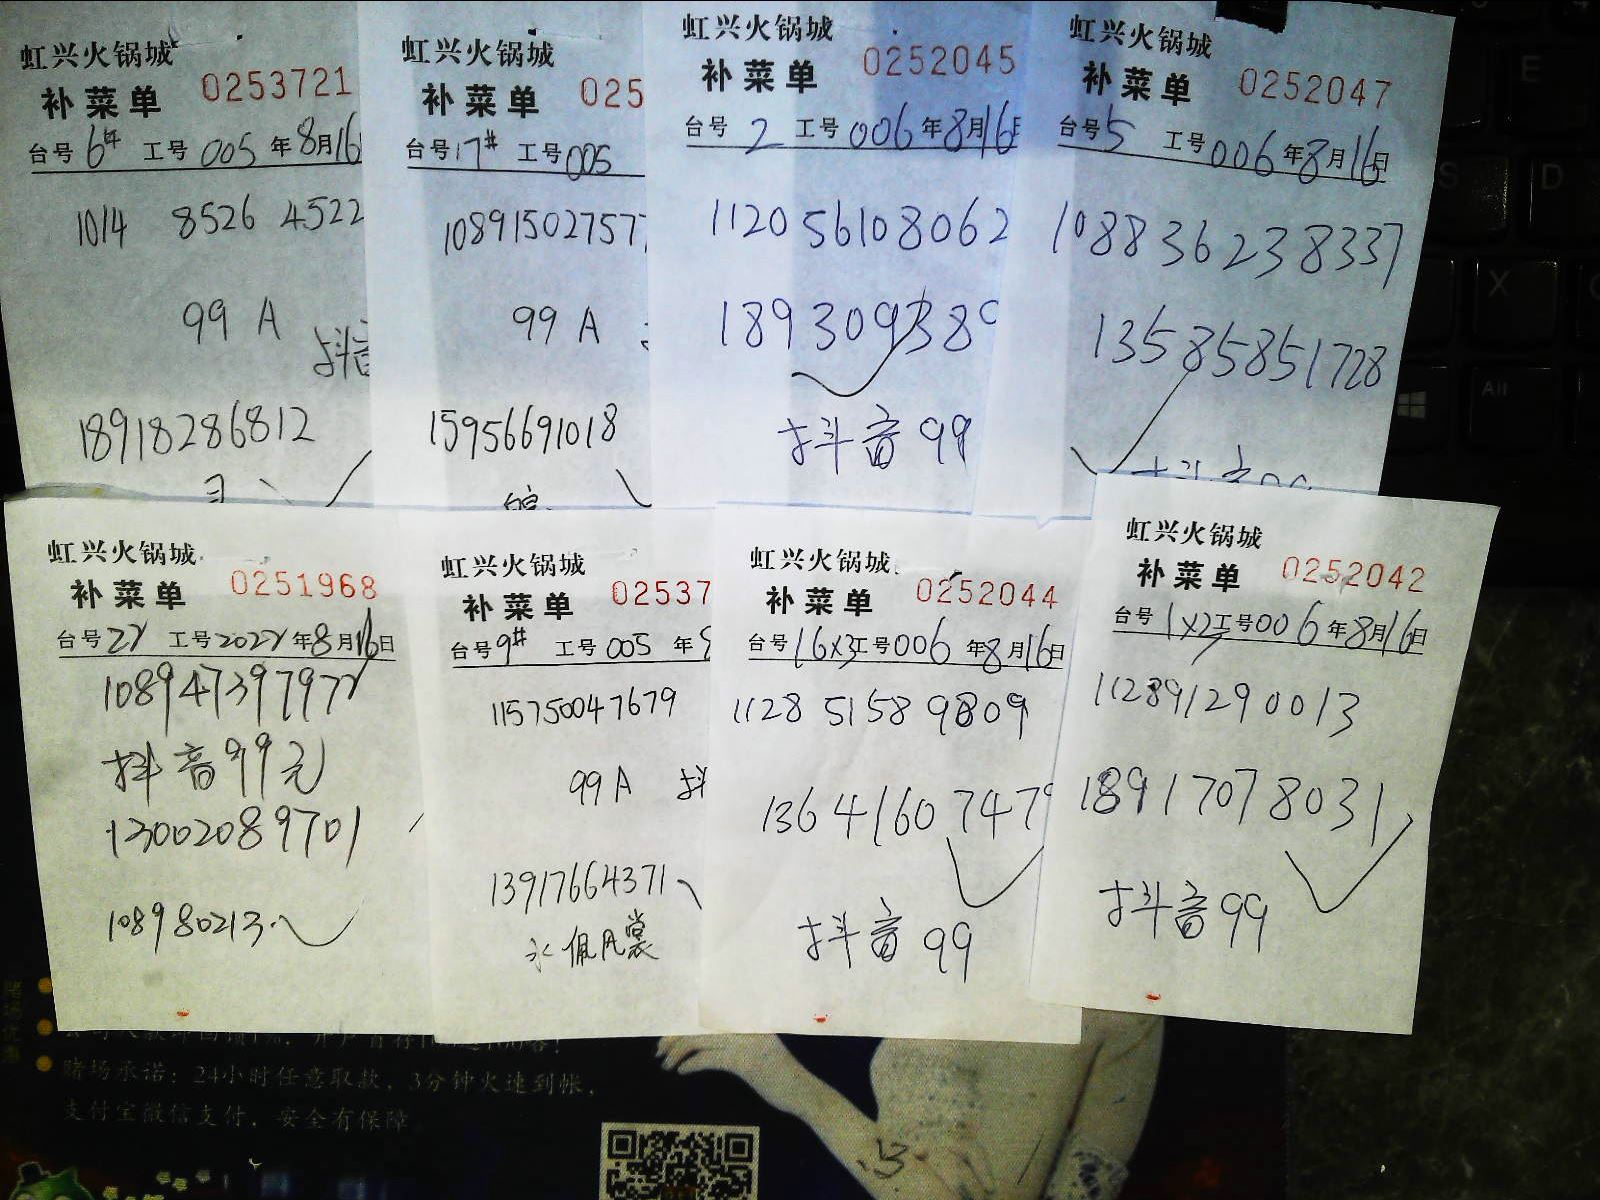 虹兴火锅城
补菜单 0253721
台号 6# 工号 005 年 8月16
1014 8526 4522
99 A
抖音
18918286812
虹兴火锅城
补菜单 025
台号 17# 工号 005
108915027577
99 A
15956691018
虹兴火锅城
补菜单 0252045
台号 2 工号 006 年 8月16日
1120 56108062
189309389
抖音 99
虹兴火锅城
补菜单 0252047
台号 5 工号 006 年 8月16日
108836238337
13585851728
抖音99
虹兴火锅城
补菜单 0251968
台号 22 工号 2022 年 8月16日
108947397972
抖音99元
13002089701
108980213
虹兴火锅城
补菜单 02537
台号 9# 工号 005 年
115750047679
99 A 抖
13917664371
虹兴火锅城
补菜单 0252044
台号 16x3 工号 006 年 8月16日
1128 5158 9809
1364160747
抖音 99
虹兴火锅城
补菜单 0252042
台号 1x2 工号 006 年 8月16日
112891290013
18917078031
抖音99
赌场承诺：24小时任意取款，3分钟火速到帐，
支付宝微信支付，安全有保障
E
S
D
X
Alt